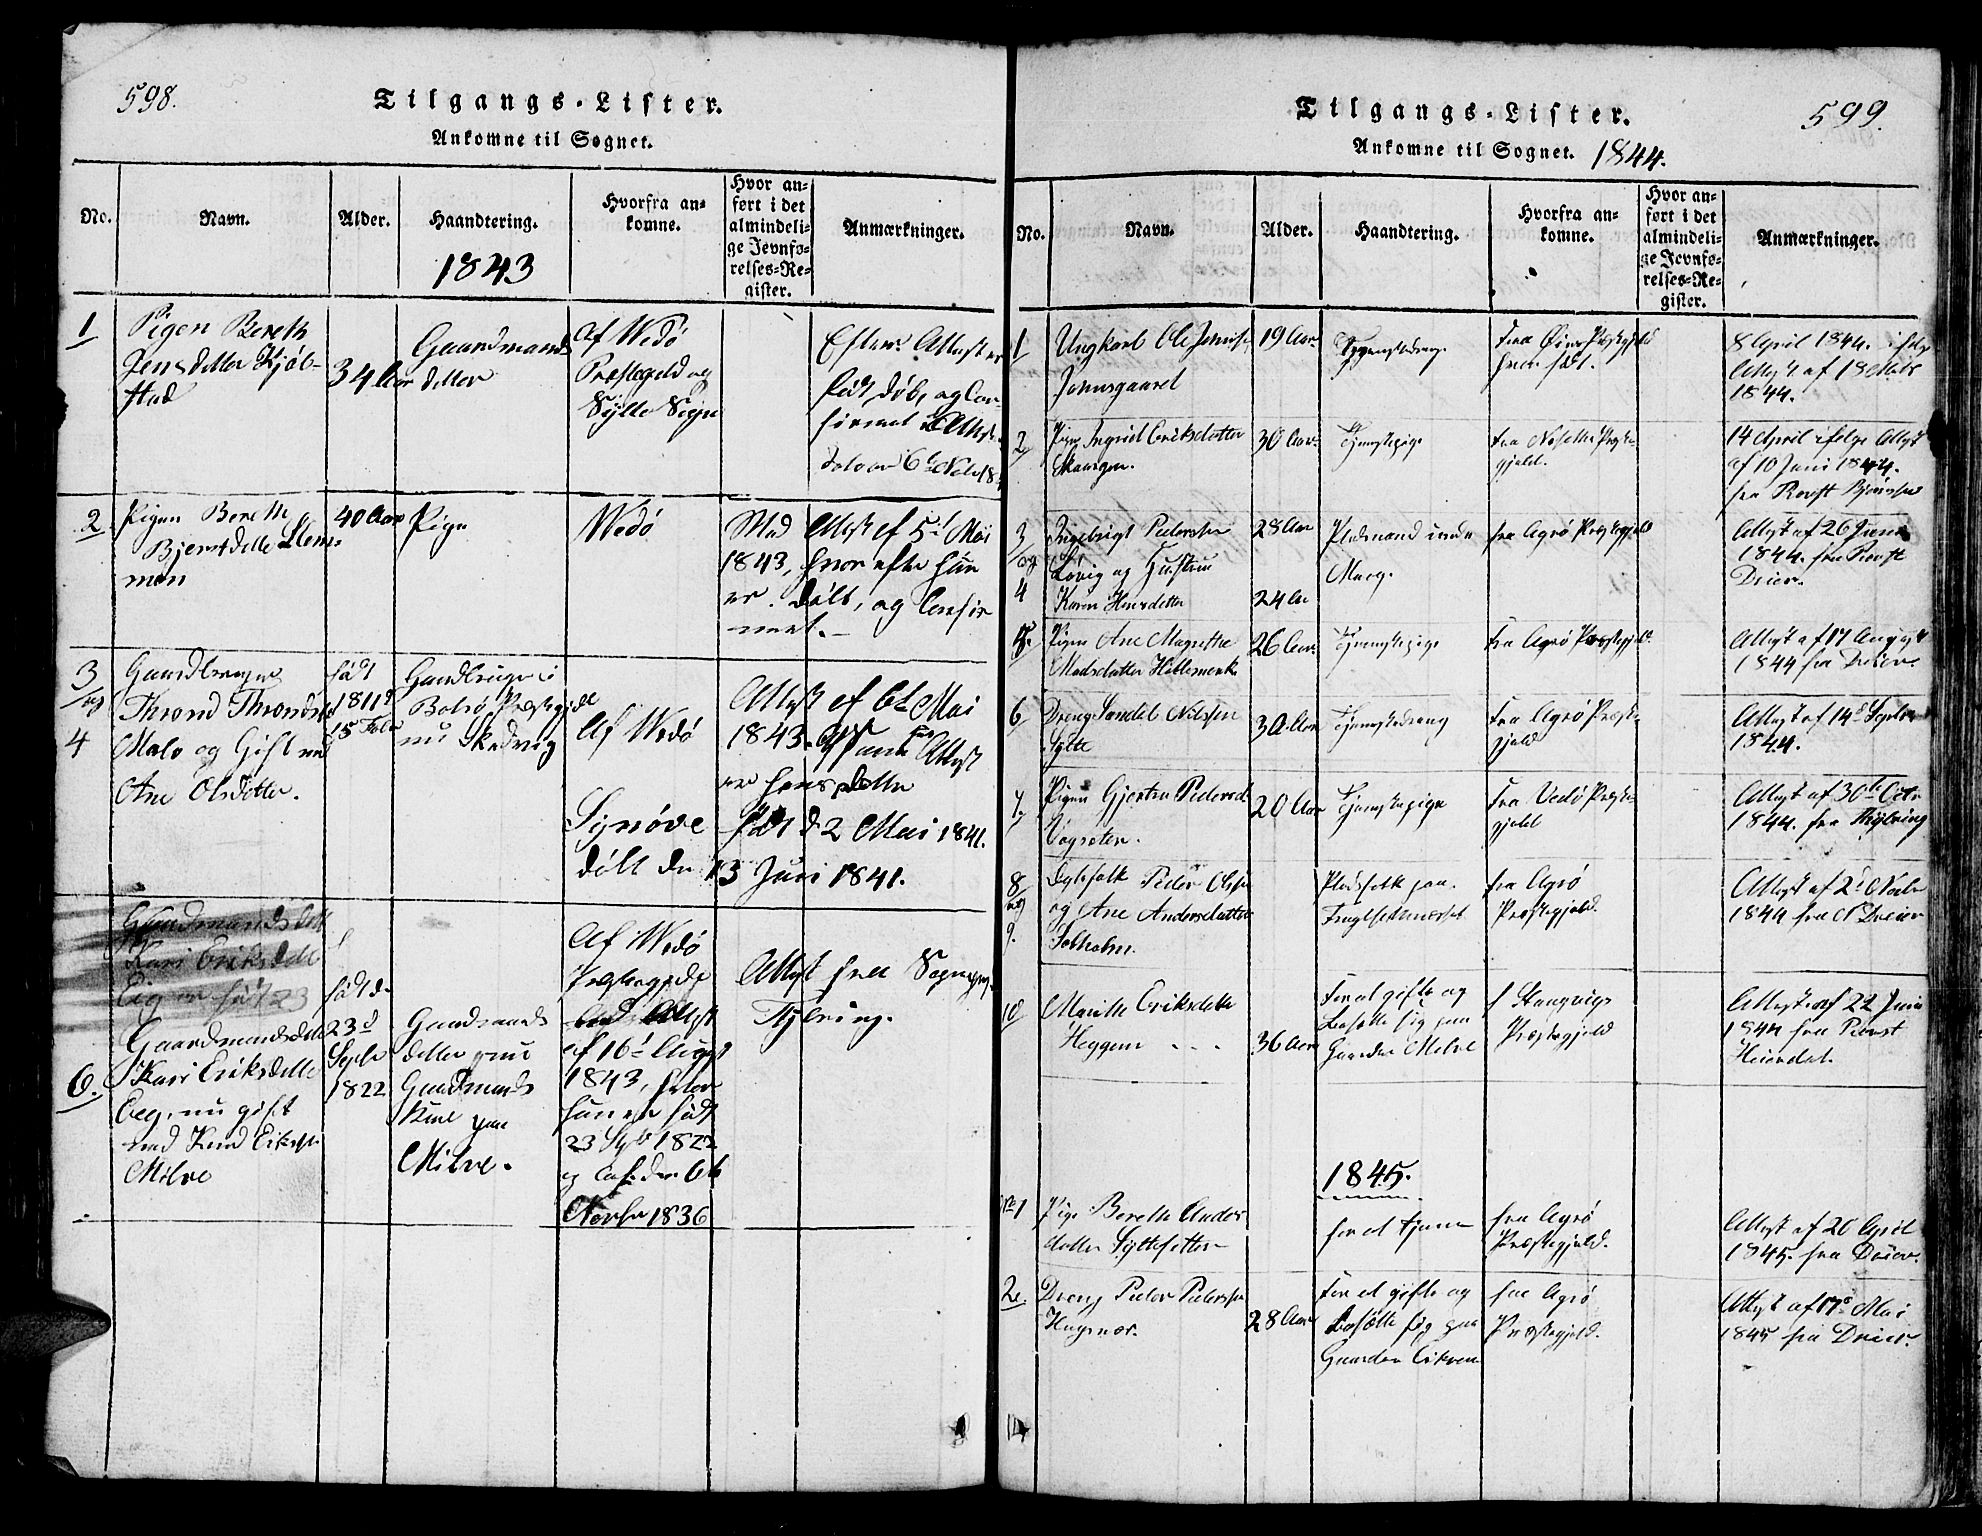 598.
Tilgangs-Lister.
Ankomne til Sognet.
No.
Navn.
Alder.
Haandtering.
1843
Hvorfra an=
komne.
Hvor an=
ført i det
almindeli=
ge Jevnfø=
relses=Re=
gister.
Anmærkninger.
1
Pigen Bereth
Jensdatter Kjøl-
stad
34 Aar
Gaardmands
datter
Af Wedø
Præstegeld og
Sylte Sogn
Efter Attest er
født, døbt og Con-
firmert
2
Pigen Bereth
40 Aar
Pige
Wedø
Med Attest af 5t Mai
1843, hvor efter hun
er døbt, og Confir
mert.
3
og
4
Gaardbruger
Thrond Thronds
Malo og Gift med
Ane Olsdatter.
født
1811
15 Febr
Gaardbruger i
Bolsø Præstegjeld
nu Skedvig
Af Wedø
Attest af 6t Mai
1843.
er hans datter
Synøve født d 2 Mai 1841.
døbt den 13 Juni 1841.
Gaardmandsdatt
Kari Eriksdatte
Eig er født 23
6.
Gaardmandsdatt
Kari Eriksdatte
Eeg, nu gift
med Knud Eriks
Milve
født d.
23d
Septbr
1822
Gaardmands
datter, nu
Gaardmands
Kone paa
Milve.
Af Wedø
Præstegjeld
Attest
af 16t August
1843, hvor
hun er født
23 Sept 1822
og Conf. den 6t
Novbr 1836
Attest fra Sognepr.
Thylring.
Tilgangs-Lister.
Ankomne til Sognet. 1844.
599.
No.
Navn.
Alder.
Haandtering.
Hvorfra an=
komne.
Hvor an=
ført i det
almindeli=
ge Jevnfø=
relses=Re=
gister.
Anmærkninger.
1
Ungkarl Ole Jonss
Jonsgaard
19 Aar
Tjenestedreng
fra Præstegjeld
8 April 1844. ifølge
Attest af 18 Marts
1844.
2
Pige Ingrid Eriksdatter
Skaargen.
30 Aar
Tjenestepige
fra Nesset Præste-
gjeld.
14 April ifølge Attest
af 10 Juni 1844.
fra Provst
3
og
4
Ingebrigt Pedersen
Løvig og Hustru
Karen Hansdatter
28 Aar
24 Aar
Pladsmand under
Moeg.
fra Agrø Præstegjeld
Attest af 26 Juni
1844. fra Provst
Dreier.
5.
Pigen Ane Magrethe
Madsdatter Hiklemork
26 Aar
Tjenestepige
fra Agrø Præstegjeld
Attest af 17 August
1844 fra Dreier.
6
Dreng Sendel Nilssen
Sylte
30 Aar
Tjenestedreng
fra Agrø Præste-
gjeld
Attest af 14d Septbr
1844.
7.
Pigen Gjertru Pedersd
Vagsæter.
20 Aar
Tjenestepige
fra Vedø Præste-
gjeld
Attest af 30te Octr
1844. fra Thylring
8
og
9.
Peder Olsen
og Ane Andersdatter
Solholm.
Pladsfolk paa
fra Agrø
Præstegjeld.
Attest af 2d Novbr
1844 fra Dreier
10
Marith Eriksdatte
Heggem
36 Aar
For at gifte og
besætte sig paa
Gaarden Milve
f Stangvigs
Præstegjeld
Attest af 22 Juni
1844 fra Provst
1845.
No 1
Pige Bereth Anders
datter Syltesetter
for at tjene
fra Agrø
Præstegjeld.
Attest af 20 April
1845. fra Dreier.
2.
Dreng Peder Pedersen
Hagenæs.
28 Aar
For at gifte og
besætte sig paa
Gaarden Eikrem
fra Agrø
Præstegjeld.
Attest af 17d Mai
1845 fra Dreier.